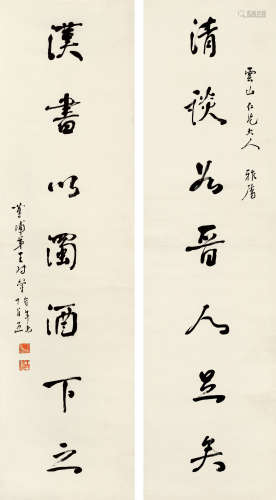 雲山仁兄大人 雅屬
清談如晋人足矣
漢書以濁酒下之